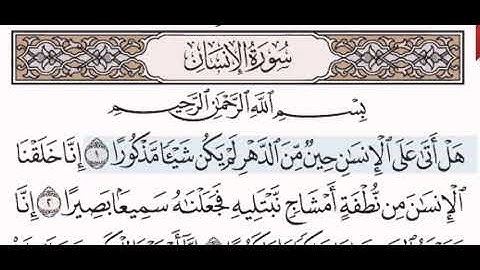 سُورَةُ الإِنسَانِ
بِسْمِ اللَّهِ الرَّحْمَٰنِ الرَّحِيمِ
هَلْ أَتَىٰ عَلَى الْإِنسَٰنِ حِينٌ مِّنَ الدَّهْرِ لَمْ يَكُن شَيْـًٔا مَّذْكُورًا ١ إِنَّا خَلَقْنَا
الْإِنسَٰنَ مِن نُّطْفَةٍ أَمْشَاجٍ نَّبْتَلِيهِ فَجَعَلْنَٰهُ سَمِيعًۢا بَصِيرًا ٢ إِنَّا